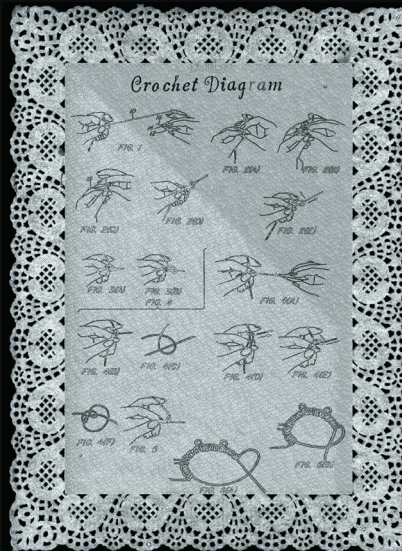 Crochet Diagram
FIG. 1
FIG. 2(A)
FIG. 2(B)
FIG. 2(C)
FIG. 2(D)
FIG. 2(E)
FIG. 3(A)
FIG. 3(B)
FIG. 4(A)
FIG. 4(B)
FIG. 4(C)
FIG. 4(D)
FIG. 4(E)
FIG. 4(F)
FIG. 5